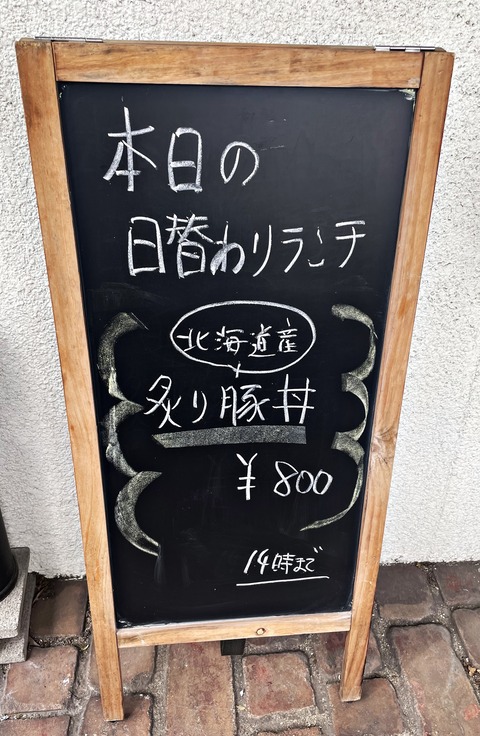 本日の
日替わりランチ
北海道産
炙り豚丼
¥800
14時まで